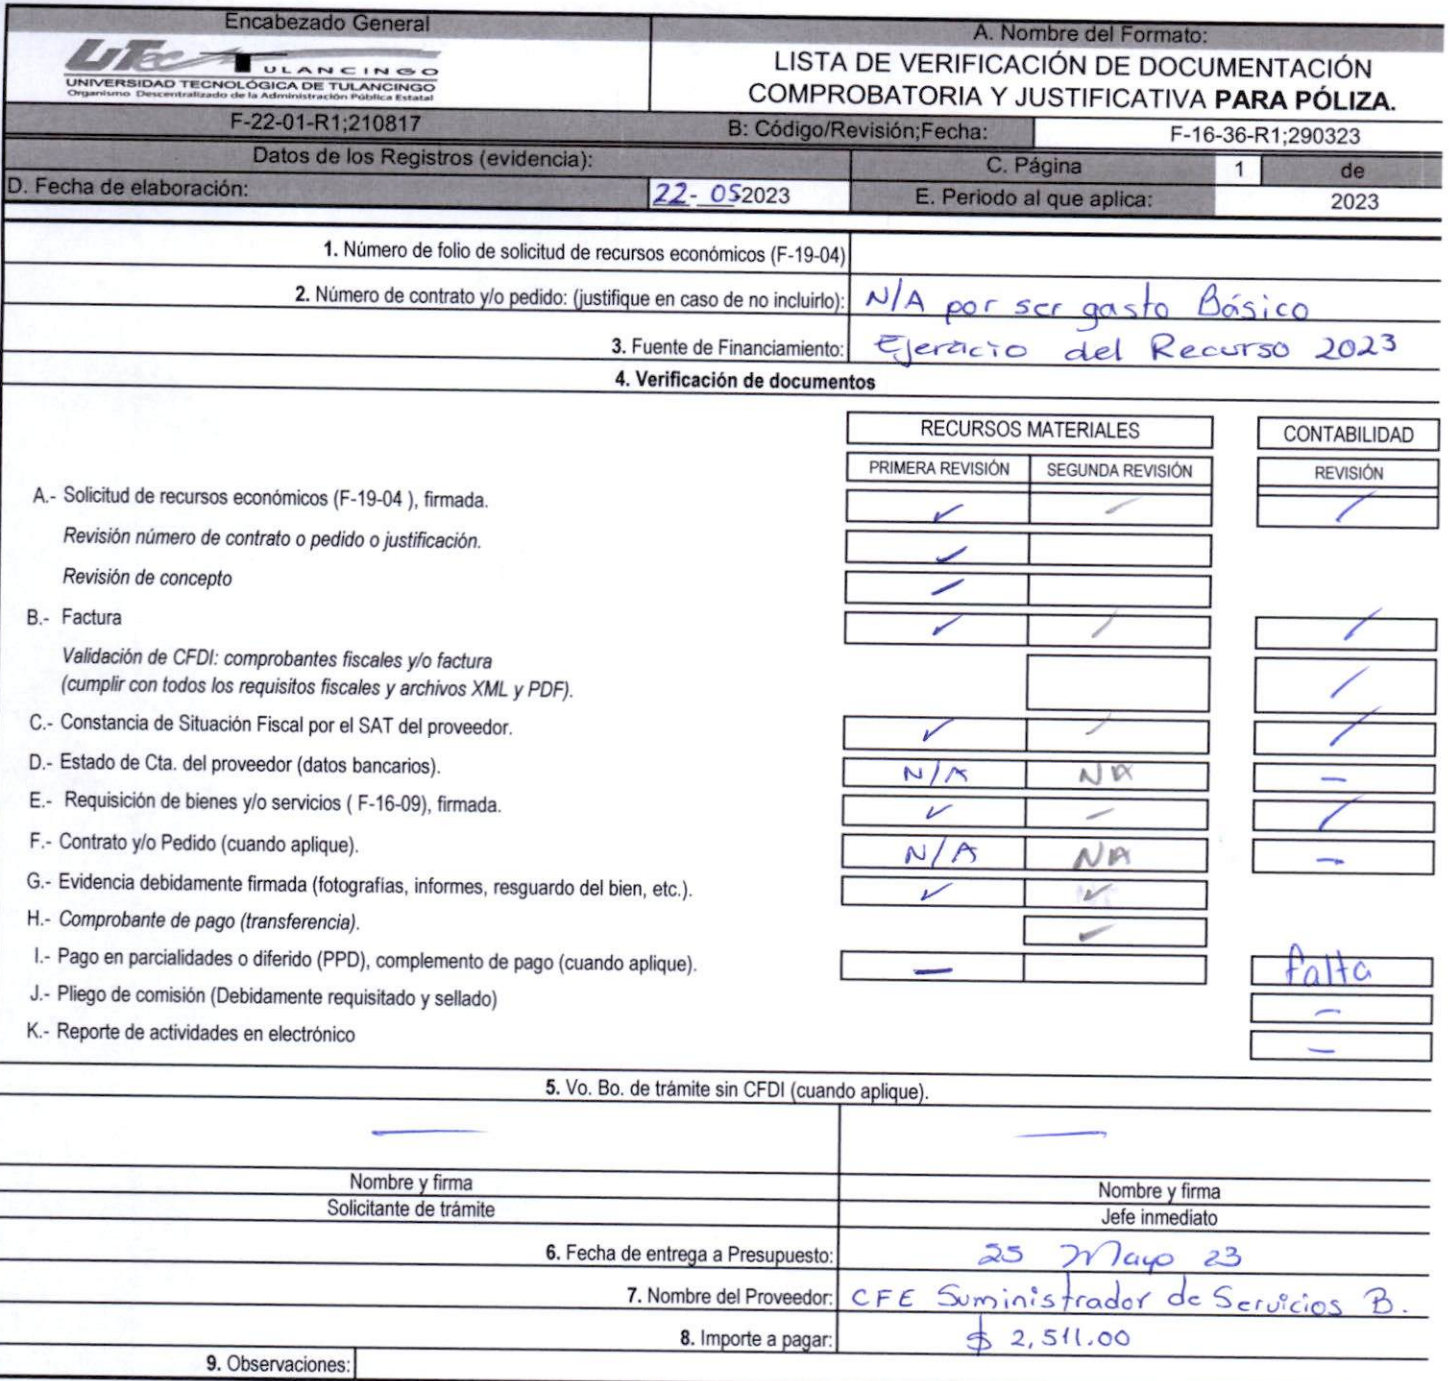 Encabezado General
A. Nombre del Formato:
UTec TULANCINGO
UNIVERSIDAD TECNOLÓGICA DE TULANCINGO
Organismo Descentralizado de la Administración Pública Estatal
LISTA DE VERIFICACIÓN DE DOCUMENTACIÓN
COMPROBATORIA Y JUSTIFICATIVA PARA PÓLIZA.
F-22-01-R1;210817
B: Código/Revisión;Fecha:
F-16-36-R1;290323
Datos de los Registros (evidencia):
C. Página
1
de
D. Fecha de elaboración:
22-05-2023
E. Periodo al que aplica:
2023
1. Número de folio de solicitud de recursos económicos (F-19-04)
2. Número de contrato y/o pedido: (justifique en caso de no incluirlo):
N/A por ser gasto Básico
3. Fuente de Financiamiento:
Ejercicio del Recurso 2023
4. Verificación de documentos
RECURSOS MATERIALES
CONTABILIDAD
PRIMERA REVISIÓN
SEGUNDA REVISIÓN
REVISIÓN
A.- Solicitud de recursos económicos (F-19-04 ), firmada.
Revisión número de contrato o pedido o justificación.
Revisión de concepto
B.- Factura
Validación de CFDI: comprobantes fiscales y/o factura
(cumplir con todos los requisitos fiscales y archivos XML y PDF).
C.- Constancia de Situación Fiscal por el SAT del proveedor.
D.- Estado de Cta. del proveedor (datos bancarios).
N/A
NA
E.- Requisición de bienes y/o servicios ( F-16-09), firmada.
F.- Contrato y/o Pedido (cuando aplique).
N/A
NA
G.- Evidencia debidamente firmada (fotografías, informes, resguardo del bien, etc.).
H.- Comprobante de pago (transferencia).
I.- Pago en parcialidades o diferido (PPD), complemento de pago (cuando aplique).
falta
J.- Pliego de comisión (Debidamente requisitado y sellado)
K.- Reporte de actividades en electrónico
5. Vo. Bo. de trámite sin CFDI (cuando aplique).
Nombre y firma
Nombre y firma
Solicitante de trámite
Jefe inmediato
6. Fecha de entrega a Presupuesto:
25 Mayo 23
7. Nombre del Proveedor:
CFE Suministrador de Servicios B.
8. Importe a pagar:
$ 2,511.00
9. Observaciones: